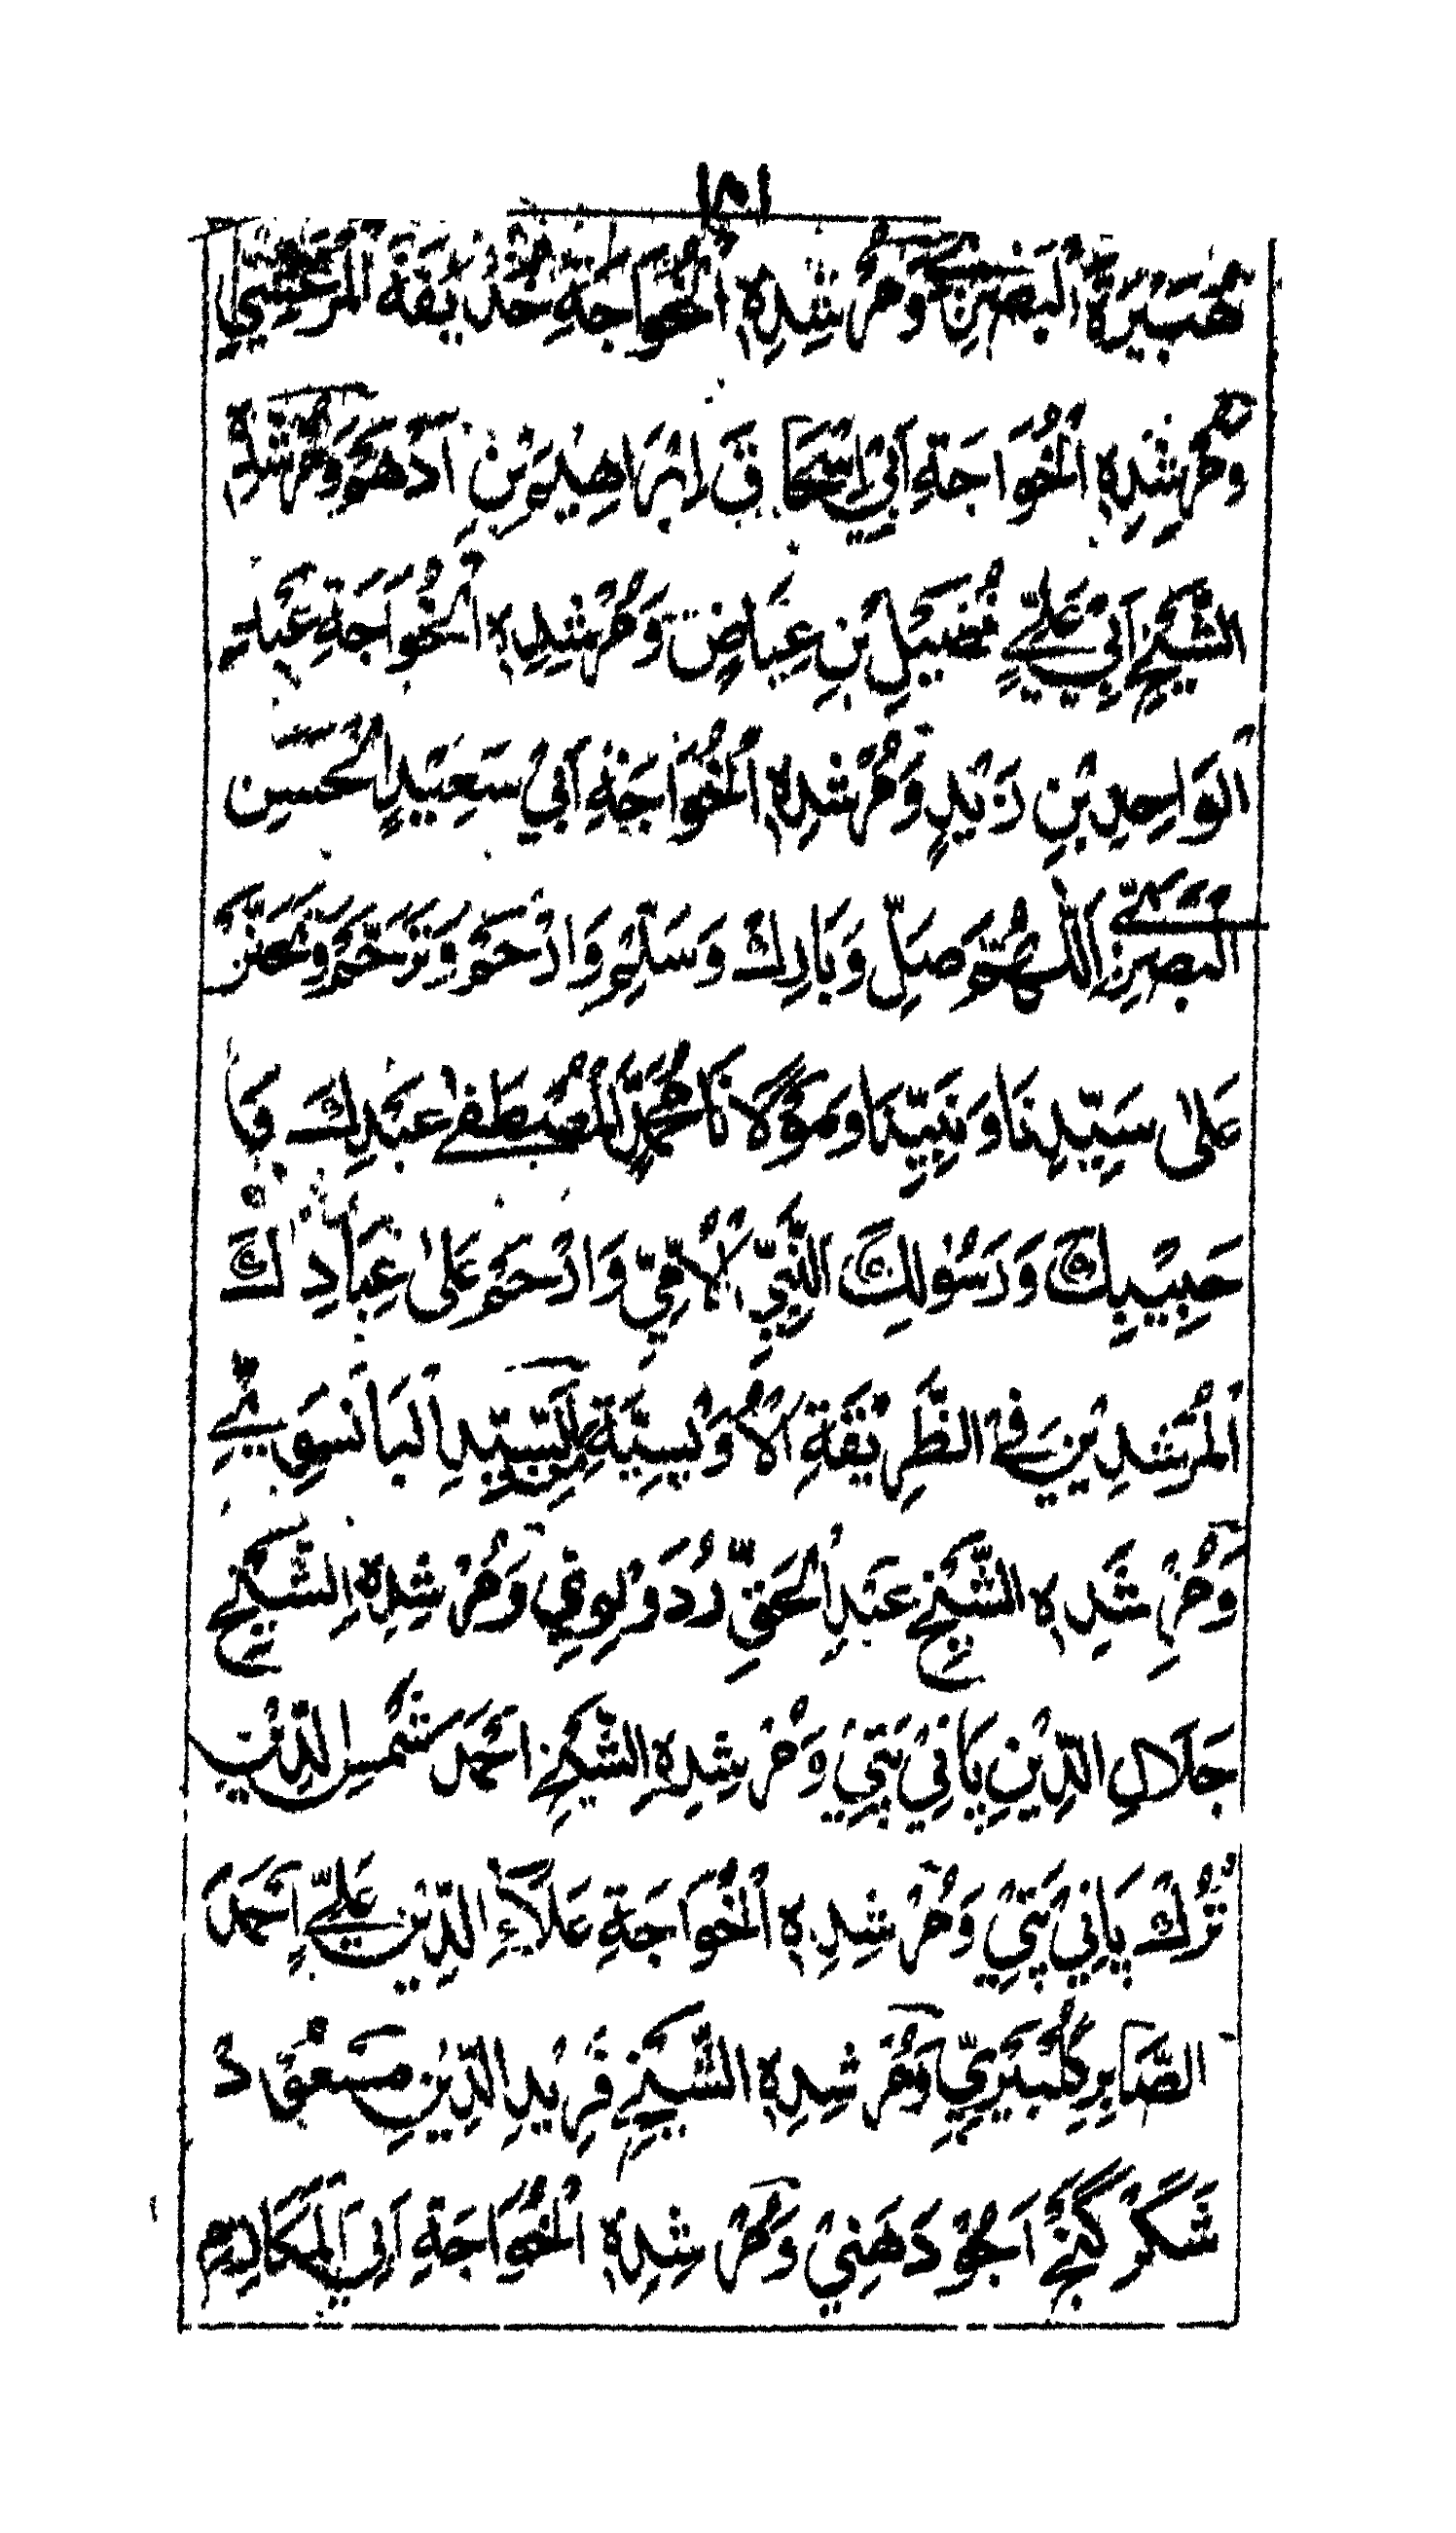 ١٢١
هُبَيْرَةَ الْبَصْرِيِّ وَمُرْشِدِهِ الْخُوَاجَةِ حُذَيْفَةَ الْمَرْعَشِيِّ
وَمُرْشِدِهِ الْخُوَاجَةِ اَبِيْ اِسْحَاقَ اِبْرَاهِيْمَ بْنِ اَدْهَمَ وَمُرْشِدِهِ
الشَّيْخِ اَبِيْ عَلِيٍّ فُضَيْلِ بْنِ عِيَاضٍ وَمُرْشِدِهِ الْخُوَاجَةِ عَبْدِ
الْوَاحِدِ بْنِ زَيْدٍ وَمُرْشِدِهِ الْخُوَاجَةِ اَبِيْ سَعِيْدٍ الْحَسَنِ
الْبَصْرِيِّ اَللّٰهُمَّ صَلِّ وَبَارِكْ وَسَلِّمْ وَارْحَمْ وَتَرَحَّمْ وَتَحَنَّنْ
عَلٰى سَيِّدِنَا وَنَبِيِّنَا وَمَوْلَانَا مُحَمَّدٍ الْمُصْطَفٰى عَبْدِكَ وَ
حَبِيْبِكَ وَرَسُوْلِكَ النَّبِيِّ الْاُمِّيِّ وَارْحَمْ عَلٰى عِبَادِكَ
الْمُرْشِدِيْنَ فِي الطَّرِيْقَةِ الْاُوَيْسِيَّةِ مِنَ السَّيِّدِ الْبَانْسَوِيِّ
وَمُرْشِدِهِ الشَّيْخِ عَبْدِ الْحَقِّ رُدَوْلَوِيْ وَمُرْشِدِهِ الشَّيْخِ
جَلَالِ الدِّيْنِ پَانِيْ پَتِيْ وَمُرْشِدِهِ الشَّيْخِ اَحْمَدَ شَمْسِ الدِّيْنِ
تُرْكْ پَانِيْ پَتِيْ وَمُرْشِدِهِ الْخُوَاجَةِ عَلَاءِ الدِّيْنِ عَلِيٍّ اَحْمَدَ
الصَّابِرِ كَلْيَرِيِّ وَمُرْشِدِهِ الشَّيْخِ فَرِيْدِ الدِّيْنِ مَسْعُوْدْ
شَكَرْ گَنْجْ اَجُوْدَهَنِيْ وَمُرْشِدِهِ الْخُوَاجَةِ اَبِي الْمَكَارِمِ